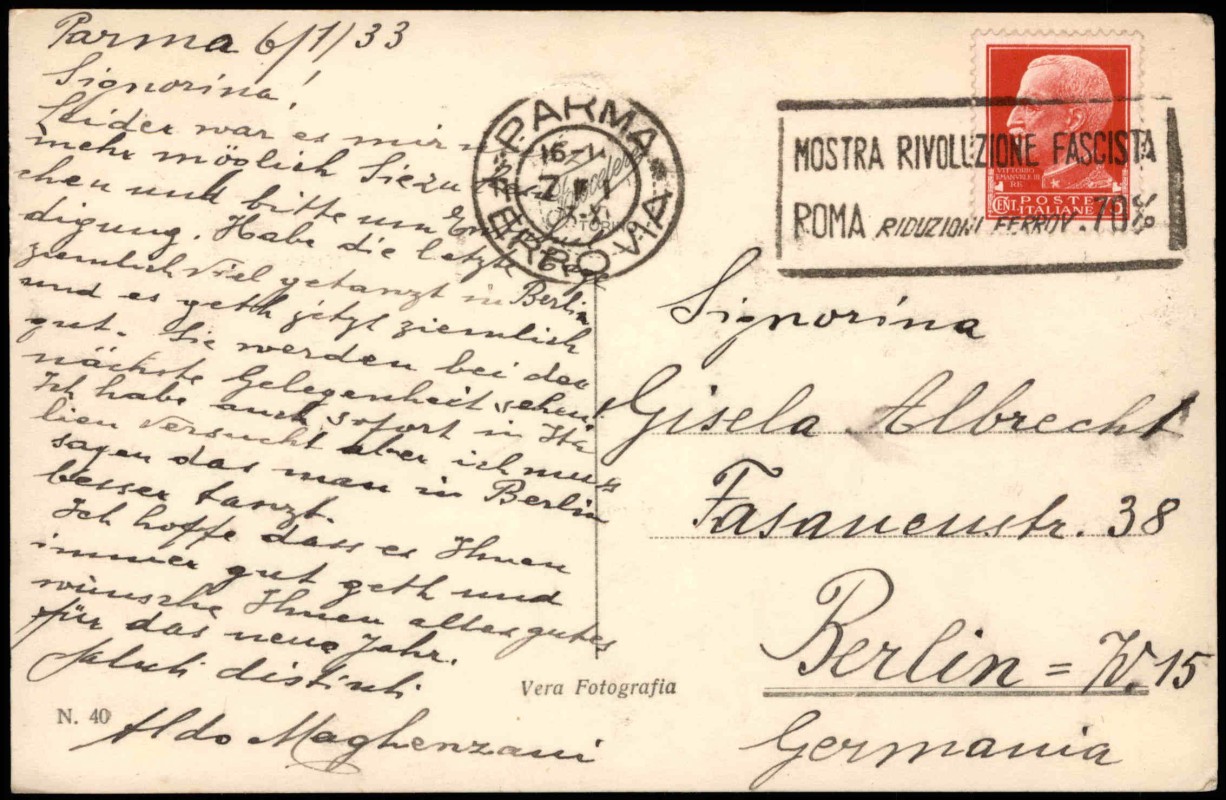 Parma 6/1/33
Signorina!
Leider war es mir
mehr möglich Sie zu
chen und bitte um
digung. Habe die letzte Tage
ziemlich viel getanzt in Berlin
und es geth jetzt ziemlich
gut. Sie werden bei der
nächste Gelegenheit sehen!
Ich habe auch sofort in Ita
lien versucht aber ich muss
sagen das man in Berlin
besser tanzt.
Ich hoffe dass es Ihnen
immer gut geth und
wünsche Ihnen alles gutes
für das neue Jahr.
Saluti distinti
Aldo Maghenzani
N. 40
Vera Fotografia
PARMA
FERROVIA
16-
7 I
X-XI
TORINO
MOSTRA RIVOLUZIONE FASCISTA
ROMA RIDUZIONI FERROV. 70%
VITTORIO
EMANVELE III
RE
CENT. POSTE ITALIANE
Signorina
Gisela Albrecht
Fasanenstr. 38
Berlin = W. 15
Germania